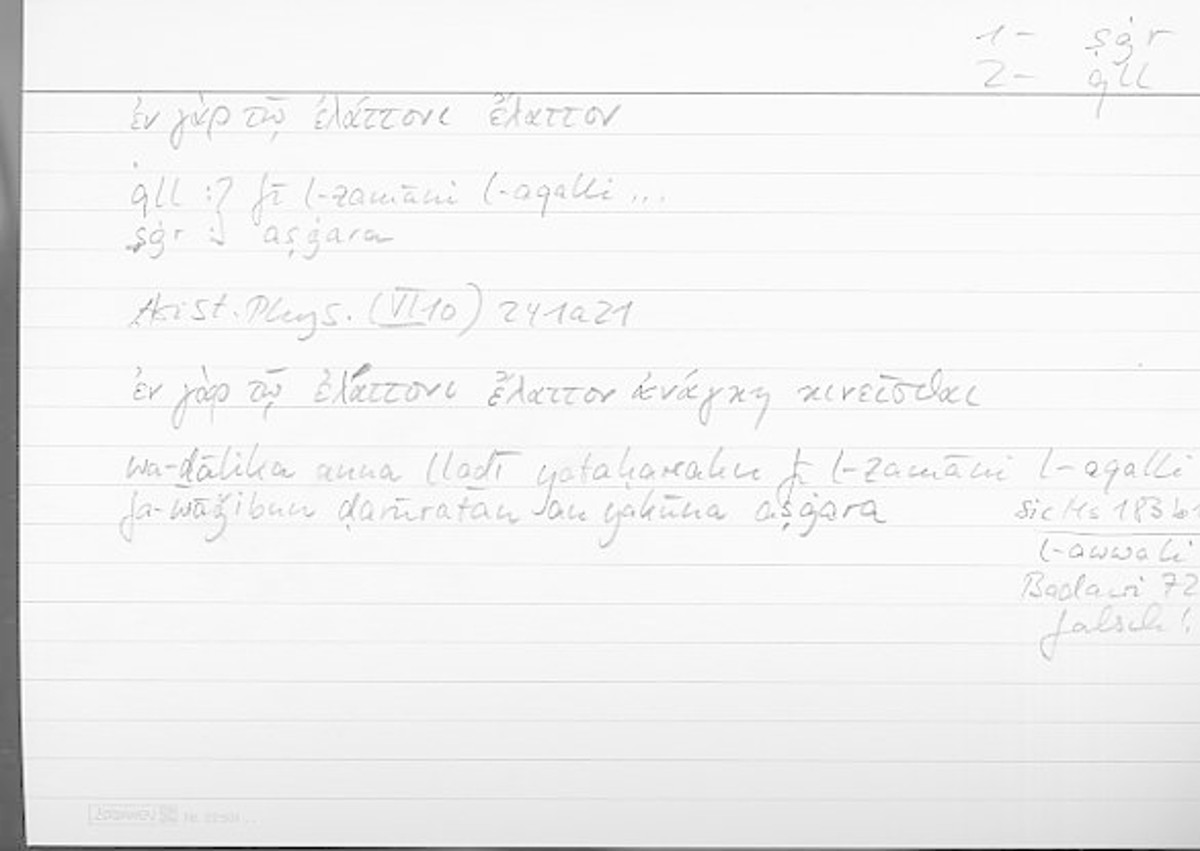 1- ṣġr
2- qll
ἐν γὰρ τῷ ἐλάττονι ἔλαττον
qll : fī l-zamāni l-aqalli ...
ṣġr : aṣġara
Arist. Phys. (VI 10) 241a21
ἐν γὰρ τῷ ἐλάττονι ἔλαττον ἀνάγκη κινεῖσθαι
wa-ḏālika anna llaḏī yataḥarraku fī l-zamāni l-aqalli
fa-wāǧibun ḍarūratan an yakūna aṣġara
sic Hs 183 b
l-awwali
Badawi 72
falsch!